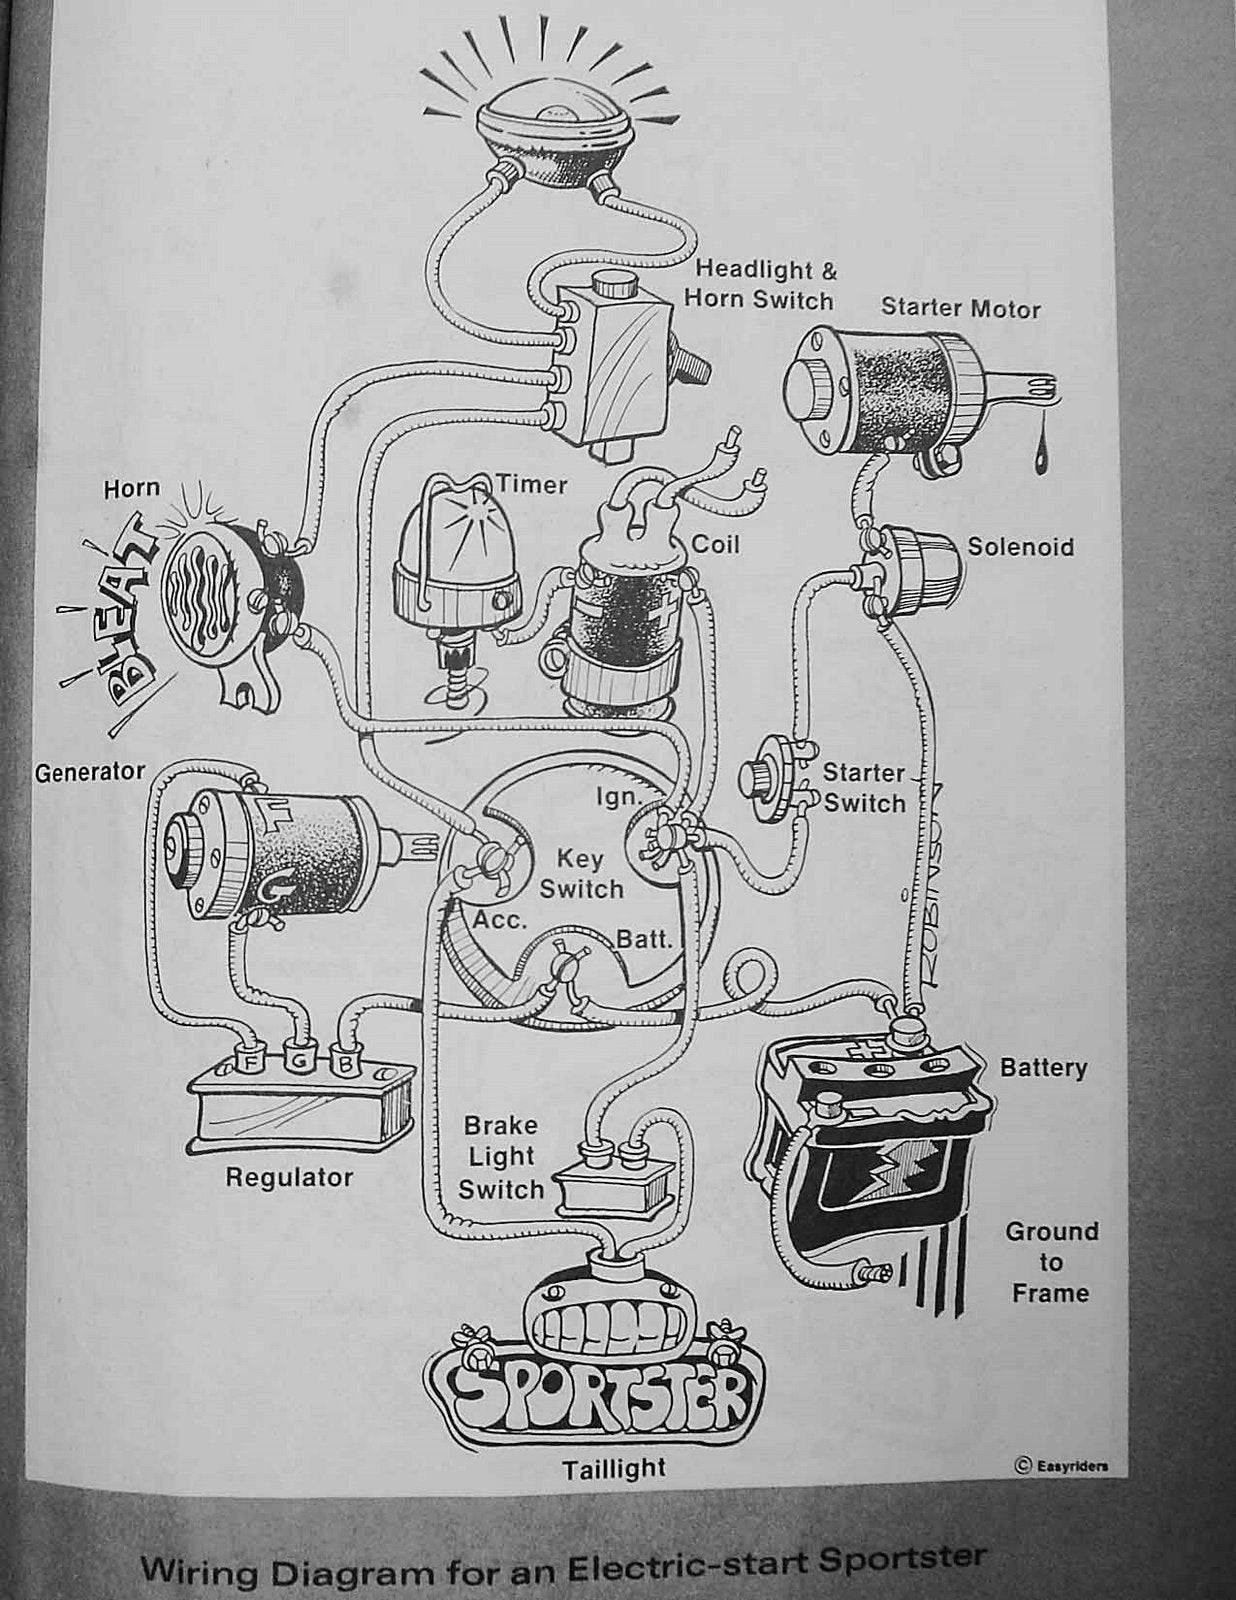 Headlight &
Horn Switch
Starter Motor
Horn
BLEAT
Timer
Coil
Solenoid
- +
Generator
F
G
Ign.
Key
Switch
Acc.
Batt.
Starter
Switch
ROBINSON
F G B
Regulator
Brake
Light
Switch
+
Battery
Ground
to
Frame
SPORTSTER
Taillight
© Easyriders
Wiring Diagram for an Electric-start Sportster